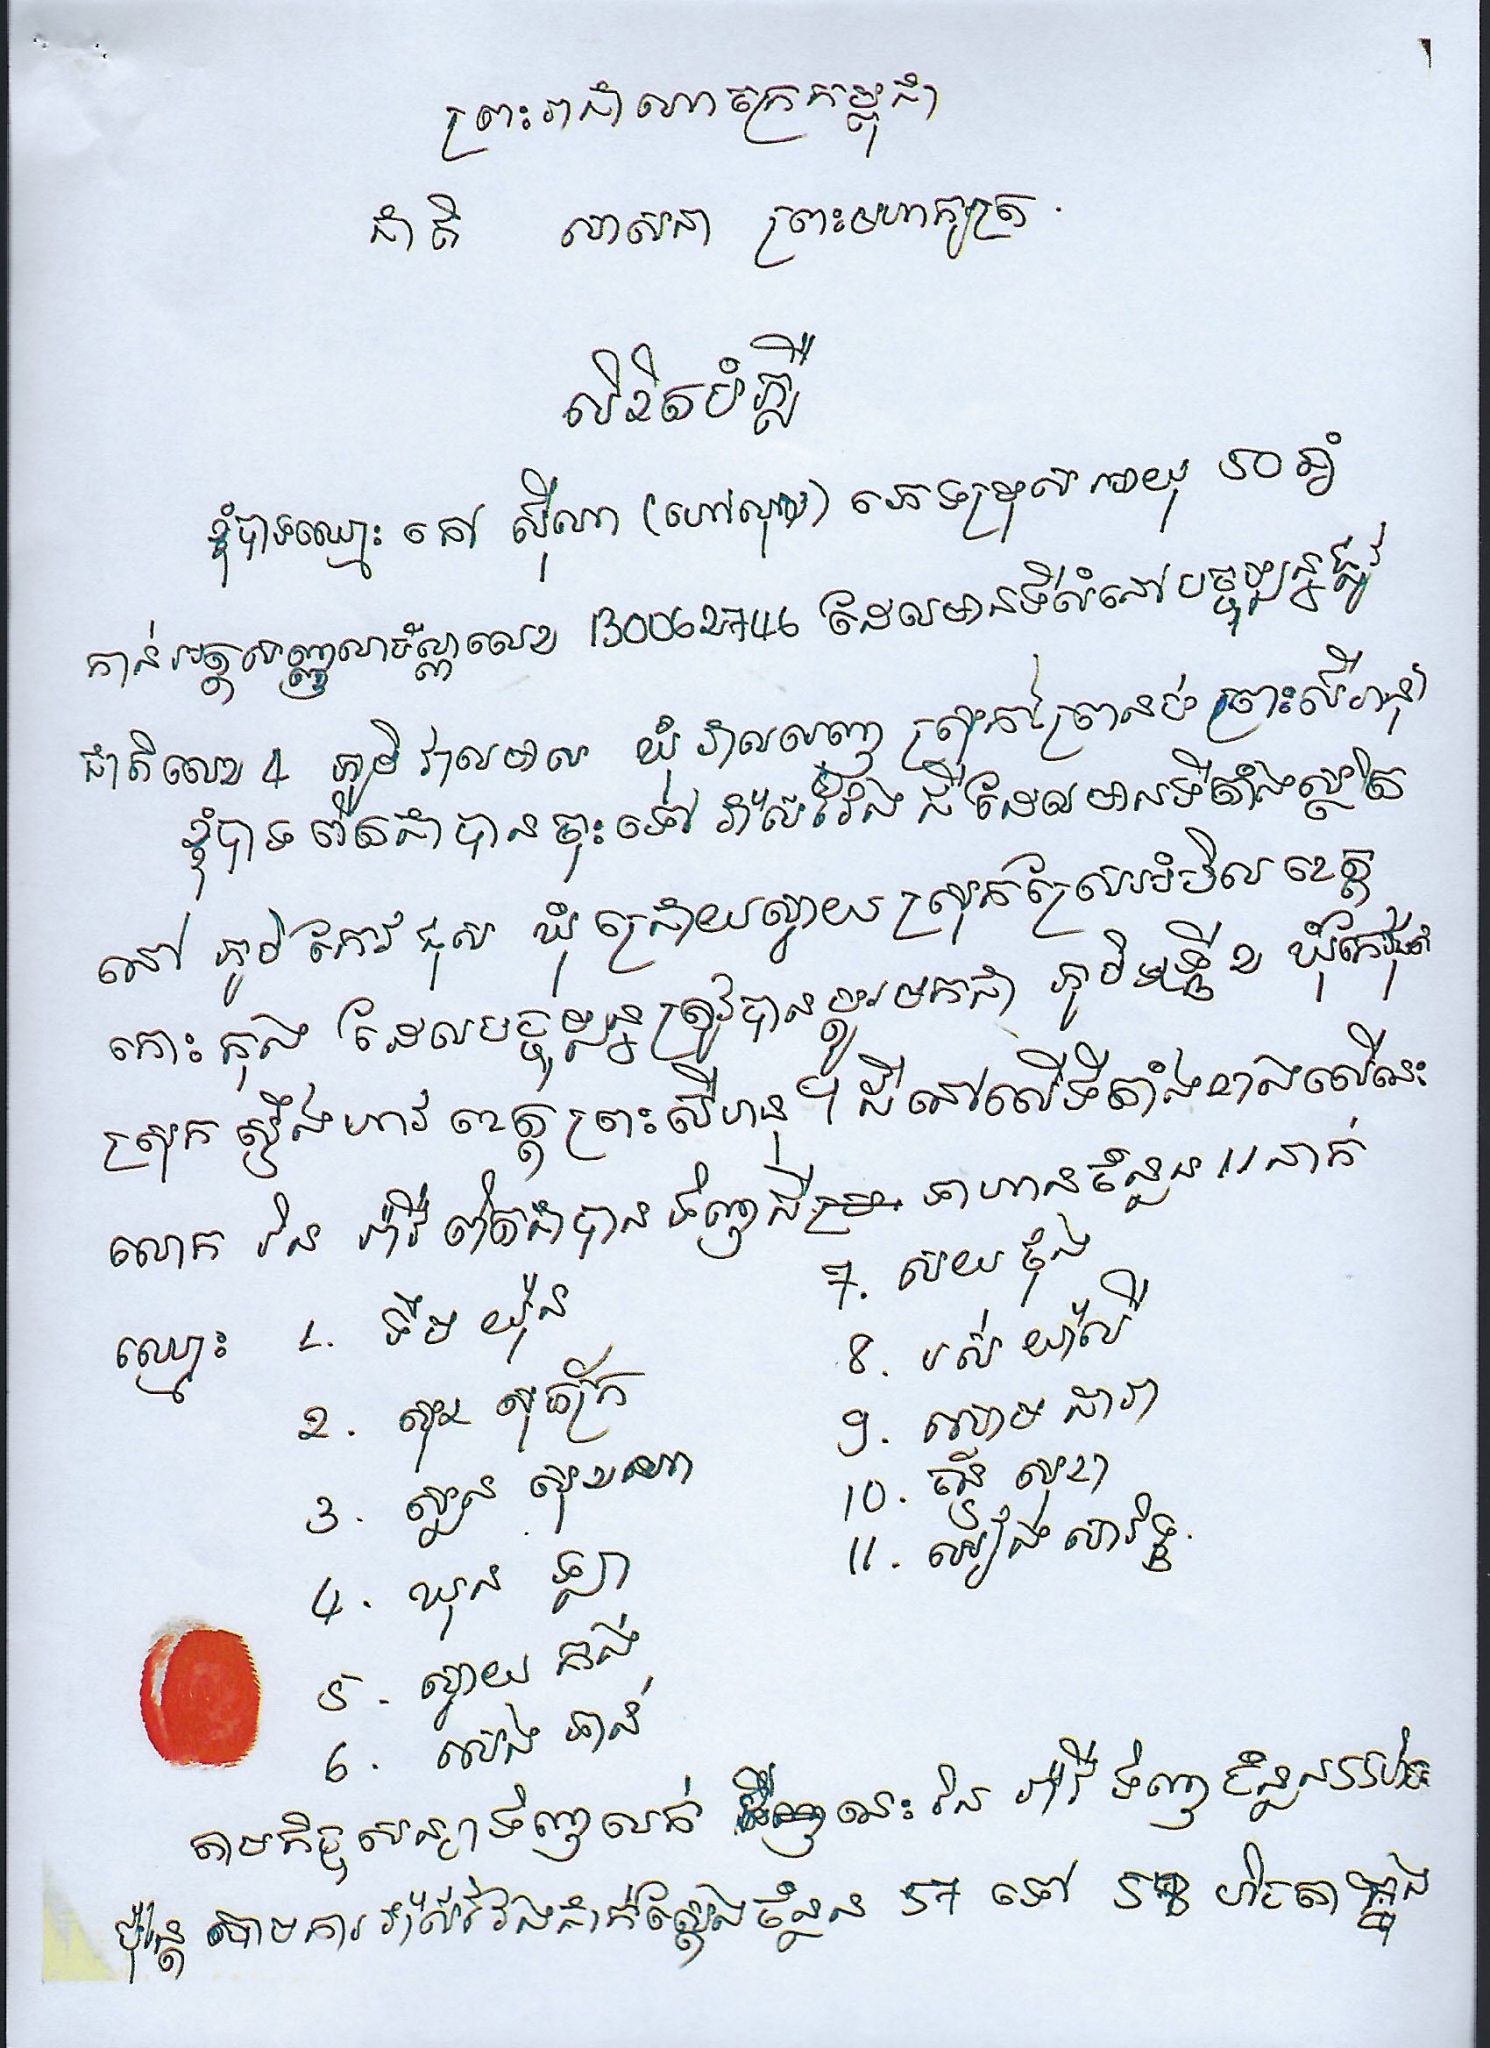 ព្រះរាជាណាចក្រកម្ពុជា
ជាតិ សាសនា ព្រះមហាក្សត្រ.
លិខិតបំភ្លឺ
ខ្ញុំបាទឈ្មោះ ចៅ ស៊ីណា (ហៅសុយ) ភេទប្រុស អាយុ 50 ឆ្នាំ
កាន់អត្តសញ្ញាណប័ណ្ណលេខ 130062746 ដែលមានទីលំនៅបច្ចុប្បន្នផ្លូវ
ជាតិលេខ 4 ភូមិ វាលមាស ឃុំ វាលរេញ ស្រុកព្រៃនប់ ព្រះសីហនុ
ខ្ញុំបាទ ពិតជាបានចុះទៅ វាស់វែង ដី ដែលមានទីតាំងស្ថិត
នៅ ភូមិ កែវផុស ឃុំ ជ្រោយស្វាយ ស្រុកស្រែអំបិល ខេត្ត
កោះកុង ដែលបច្ចុប្បន្នត្រូវបានប្តូរមកជា ភូមិ ២ ឃុំកែវផុស
ស្រុក ស្ទឹងហាវ ខេត្តព្រះសីហនុ។ ដីនៅលើទីតាំងខាងលើនេះ
លោក រិន វ៉ារី ពិតជាបាន ទិញដី ទាហានចំនួន 11 នាក់
ឈ្មោះ 1. ទឹម យ៉ុន
2. សុខ
3. សួន សុខណា
4. ឃុន
5. ស្វាយ កង់
6. ឆាន់
7. សយ ថុង
8. រស់ យ៉ាលី
9. ដារ៉ា
10. សុខា
11. សារិទ្ធ.
តាមកិច្ចសន្យាទិញលក់ នេះ រិន វ៉ារី ទិញ ចំនួន 55 ហិកតា
ប៉ុន្តែ តាមការវាស់វែងជាក់ស្តែងចំនួន 57 ទៅ 58 ហិកតា ក្នុង